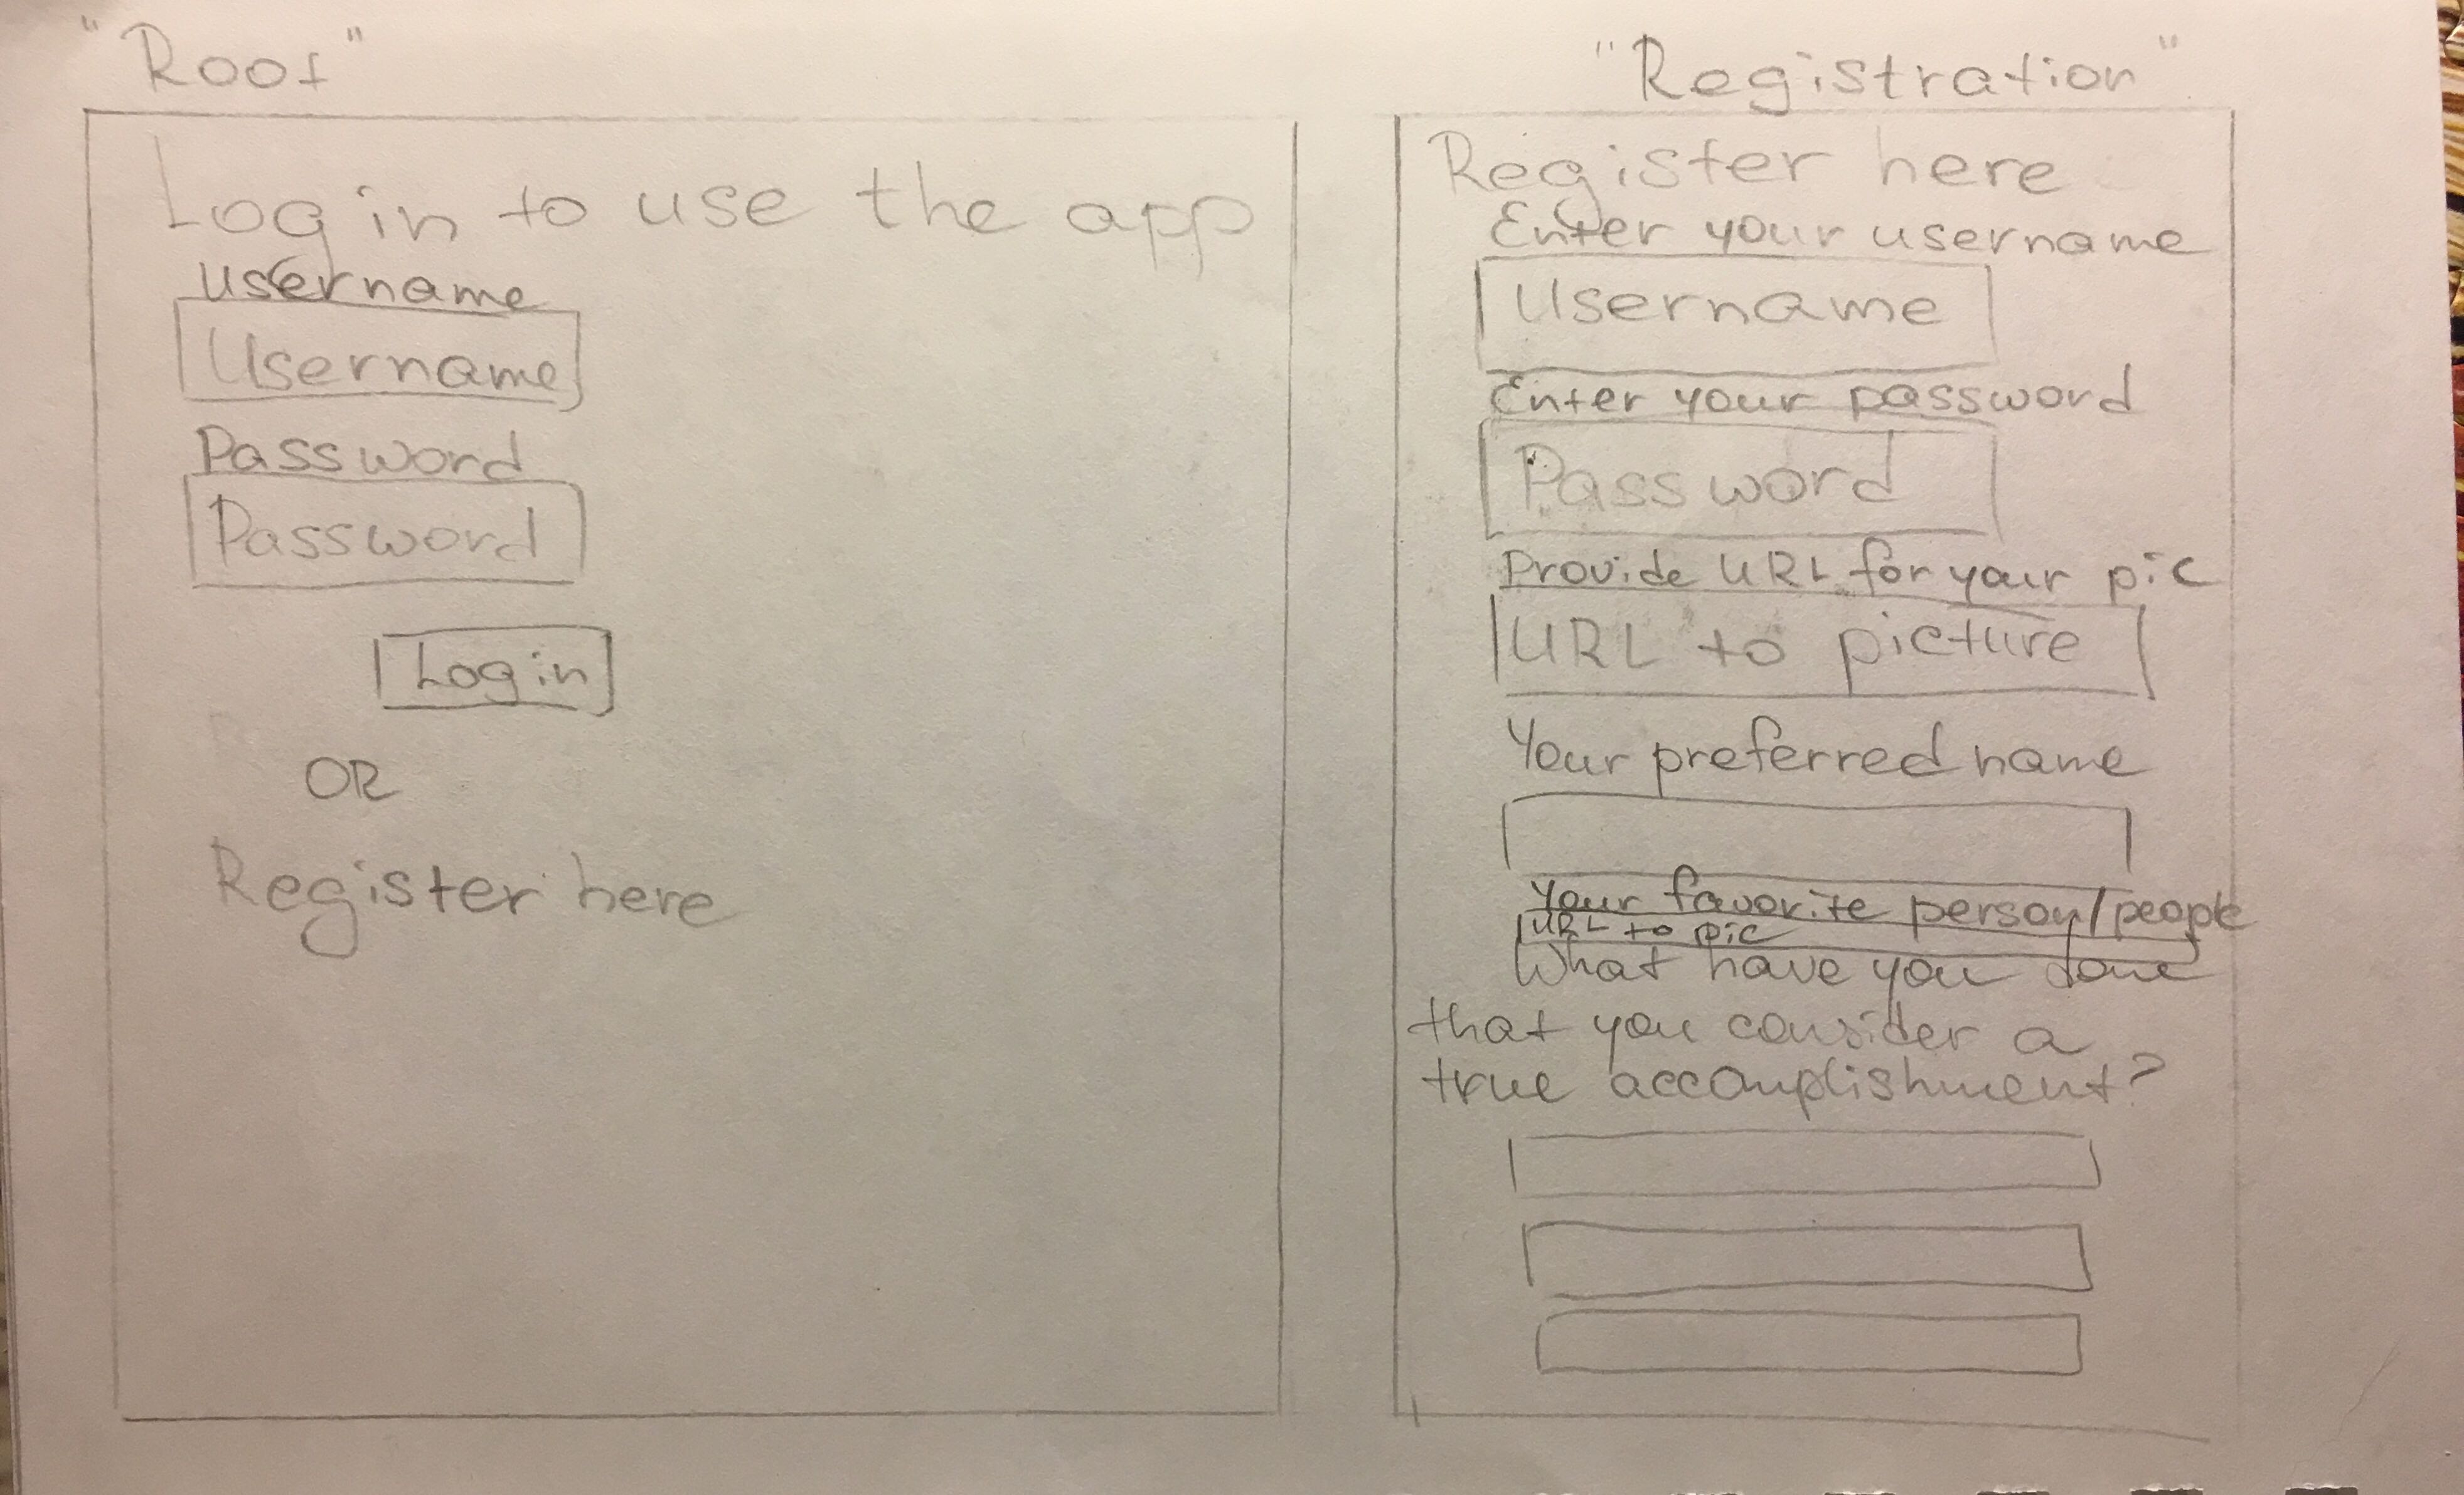 "Root"
Log in to use the app
username
Username
Password
Password
Log in
OR
Register here
"Registration"
Register here
Enter your username
Username
Enter your password
Password
Provide URL for your pic
URL to picture
Your preferred name
Your favorite person/people
URL to pic
What have you done
that you consider a
true accomplishment?